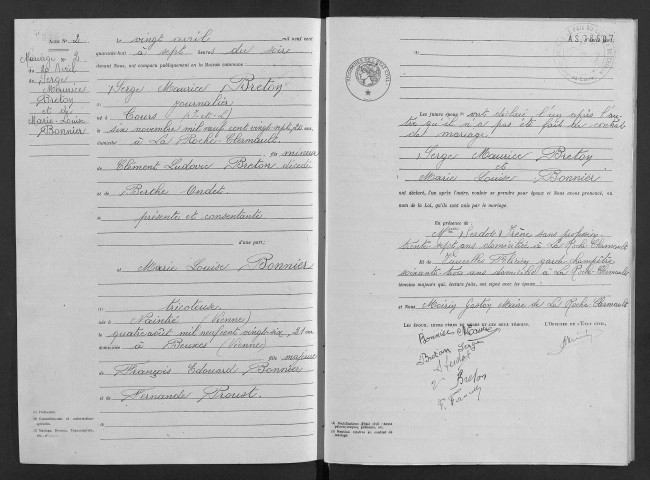 Acte N° 2
Mariage N° 2
du 20 Avril
de Serge
Maurice
Breton
et de
Marie-Louise
Bonnier
Le vingt avril mil neuf cent
quarante-huit à sept heures du soir
devant Nous, ont comparu publiquement en la Maison commune :
Serge Maurice Breton
journalier
né à Cours
six novembre mil neuf cent vingt sept, 20 ans
domicilié à La Roche-Clermault
fils mineur
de Clément Ludovic Breton décédé
et de Berthe Ondet
présente et consentante
d'une part;
et Marie Louise Bonnier
tricoteuse
née à Naintré (Vienne)
le quatre août mil neuf cent vingt-six, 21 ans
domiciliée à (Vienne)
fille majeure
de François Edouard Bonnier
et de Fernande Proust
AS 78607
Les futurs époux ont déclaré l'un après l'au-
tre qu'il n'a pas été fait de contrat
de mariage
Serge Maurice Breton
et
Marie Louise Bonnier
ont déclaré, l'un après l'autre, vouloir se prendre pour époux et Nous avons prononcé, au
nom de la Loi, qu'ils sont unis par le mariage.
En présence de :
Irène sans profession
trente sept ans domiciliée à La Roche Clermault
Et de garde champêtre
soixante trois ans domicilié à La Roche Clermault
témoins majeurs qui, lecture faite, ont signé avec les époux
et Nous Gaston Maire de La Roche-Clermault
Les époux, leurs pères et mères et les deux témoins, L'Officier de l'État civil,
Bonnier Marie
Breton Serge
Breton